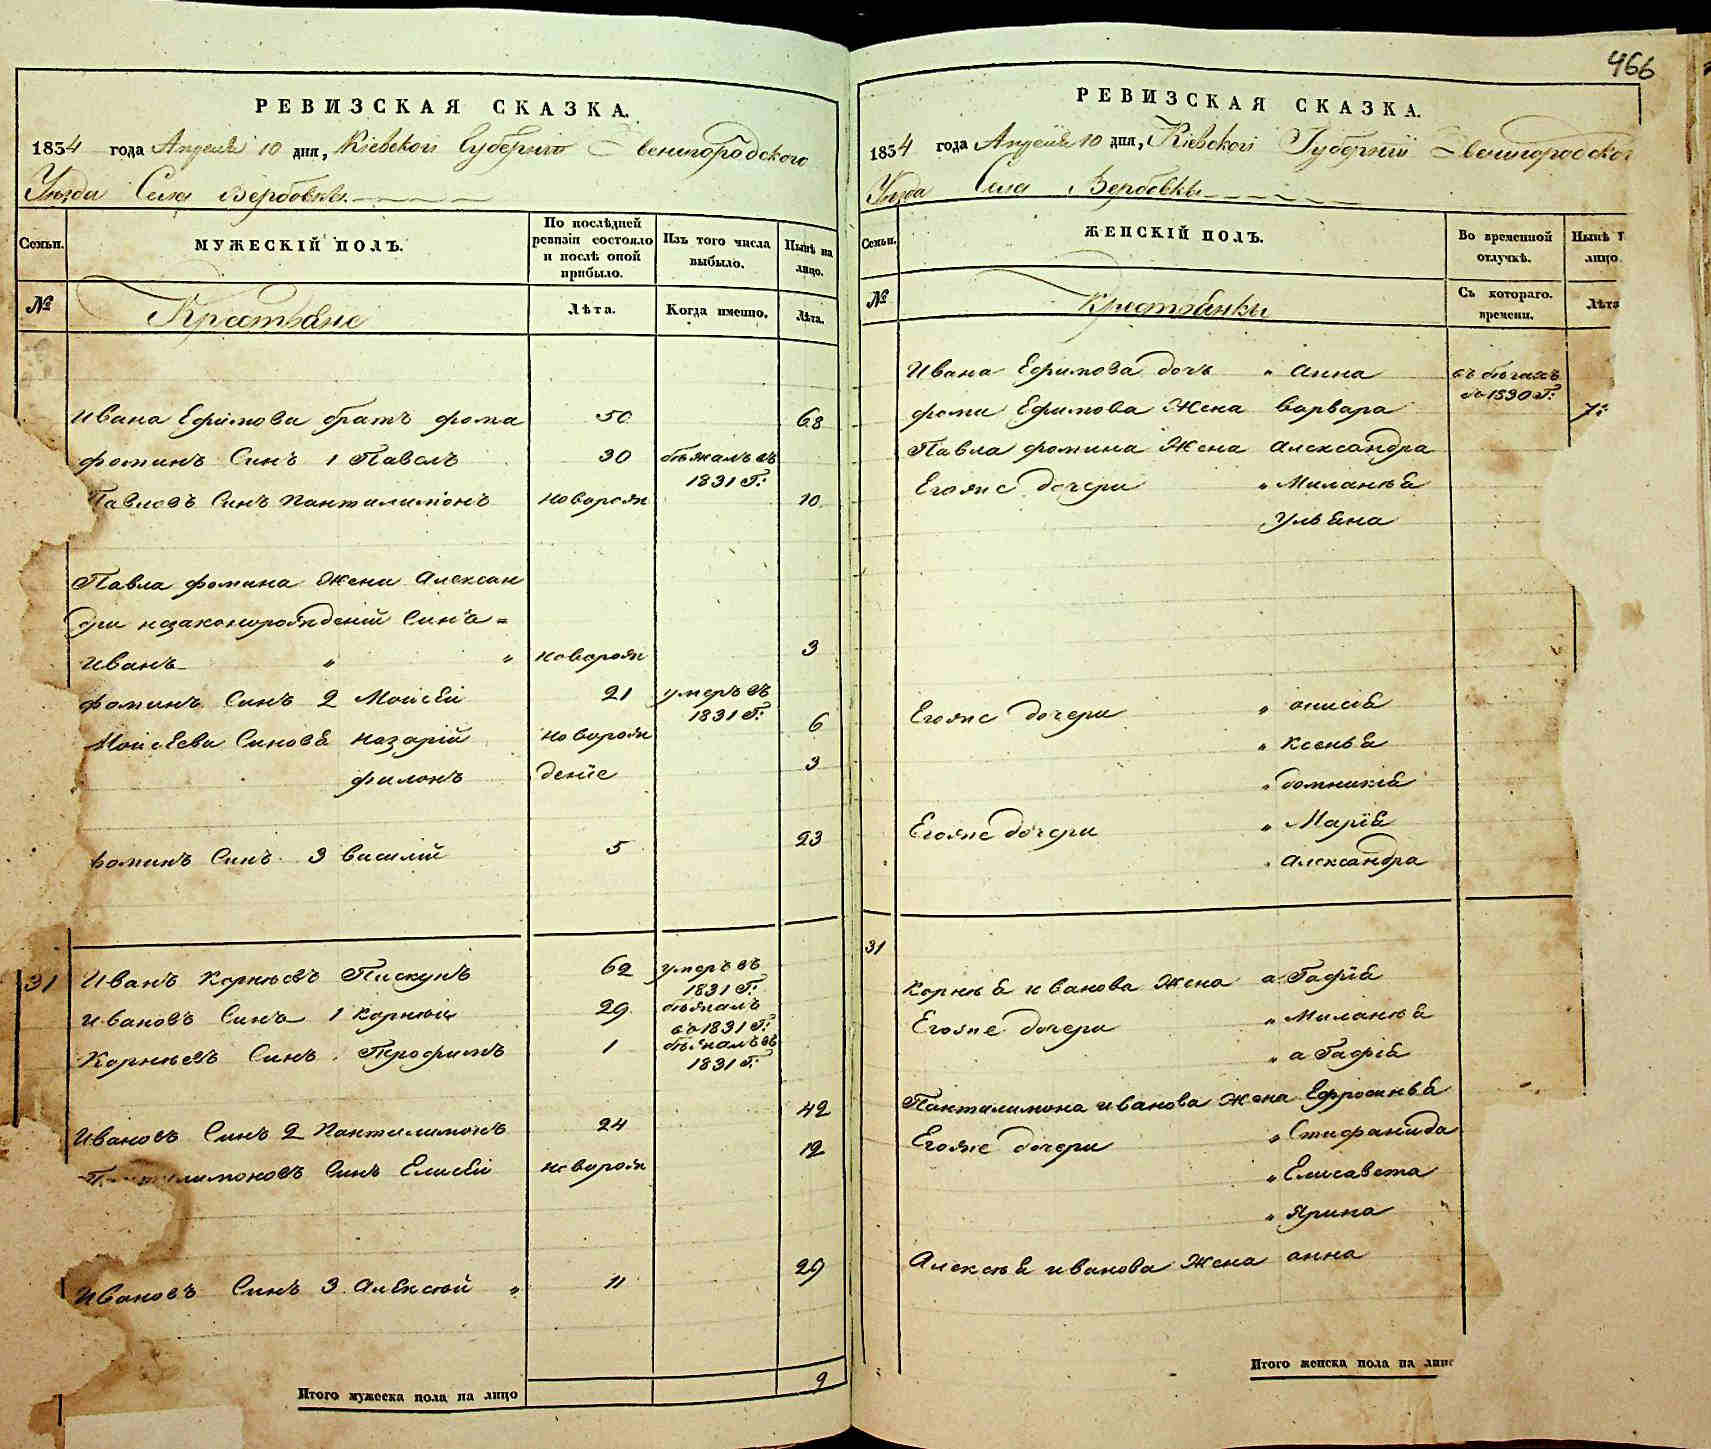 466
РЕВИЗСКАЯ СКАЗКА.
1834 года Апреля 10 дня, Кіевской Губерніи Звенигородского
Уѣзда Села Вербовки.
Семьи. МУЖЕСКІЙ ПОЛЪ. По послѣдней ревизіи состояло и послѣ оной прибыло. Изъ того числа выбыло. Нынѣ на лицо.
№ Крестьяне Лѣта. Когда именно. Лѣта.
Ивана Ефимова братъ фома 50 68
фоминъ Синъ 1 Павелъ 30 бѣжалъ въ 1831 Г:
Павловъ Синъ Панталимонъ новорож 10
Павла фомина жени Алексан
дри незаконорожденій Синъ =
Иванъ " " новорож 3
фоминъ Синъ 2 Моисѣй 21 умеръ въ 1831 Г:
Моисѣева Синовя назарій новорож 6
филонъ деніе 3
фоминъ Синъ 3 василій 5 23
31 Иванъ Корнѣевъ Пискунъ 62 умеръ въ 1831 Г:
Ивановъ Синъ 1 Корнѣй 29 бѣжалъ въ 1831 Г:
Корнѣевъ Синъ Трофимъ 1 бѣжалъ въ 1831 Г:
Ивановъ Синъ 2 Панталимонъ 24 42
Панталимоновъ Синъ Елисѣй новорож 12
Ивановъ Синъ 3 Алексѣй " 11 29
Итого мужеска пола на лицо 9
РЕВИЗСКАЯ СКАЗКА.
1834 года Апреля 10 дня, Кіевской Губерніи Звенигородског
Уѣзда Села Вербовки
Семьи. ЖЕНСКІЙ ПОЛЪ. Во временной отлучкѣ. Нынѣ на лицо.
№ Крестьянки Съ котораго. времени. Лѣта
Ивана Ефимова дочь " Анна въ бѣгахъ съ 1830 Г:
фоми Ефимова Жена варвара 7
Павла фомина Жена Александра
Егояже дочери " Миланья
Ульяна
Егояже дочери " онисія
" Ксенья
" домникія
Егояже дочери " Марія
" Александра
31
Корнѣя иванова Жена агафія
Егояже дочери " Миланья
" агафія
Панталимона иванова Жена Ефросинья
Егояже дочери " Стифанида
" Елисавета
" Ярина
Алексѣя иванова Жена анна
Итого женска пола на лицо